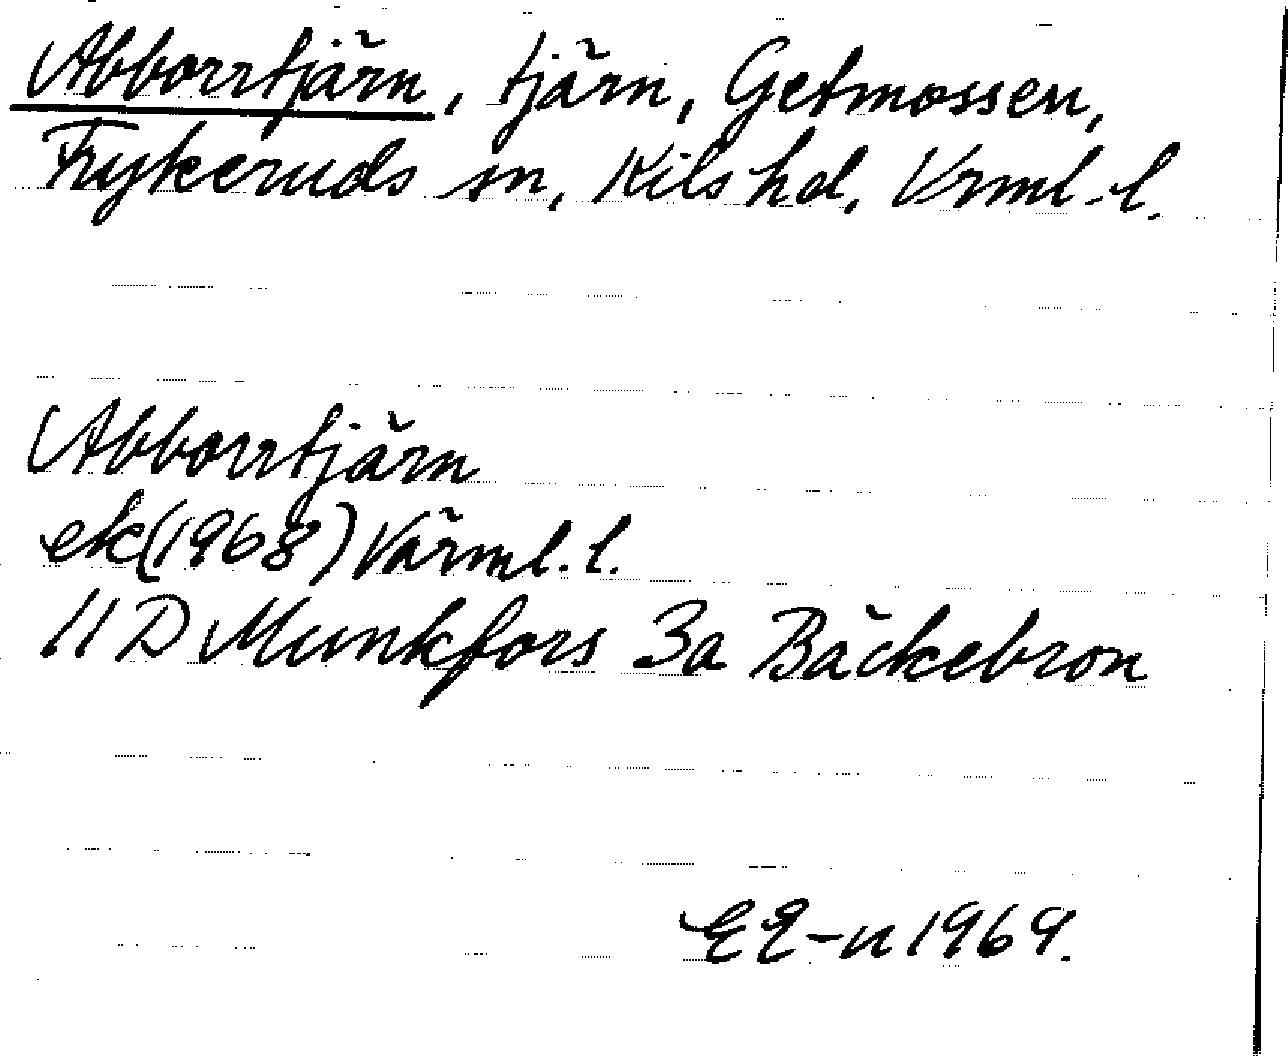 Abborrtjärn, tjärn, Getmossen,
Frykeruds sn, Kils hd, Vrml. l.
Abborrtjärn
ek (1968) Värml. l.
11 D Munkfors 3a Bäckebron
EE-n 1969.